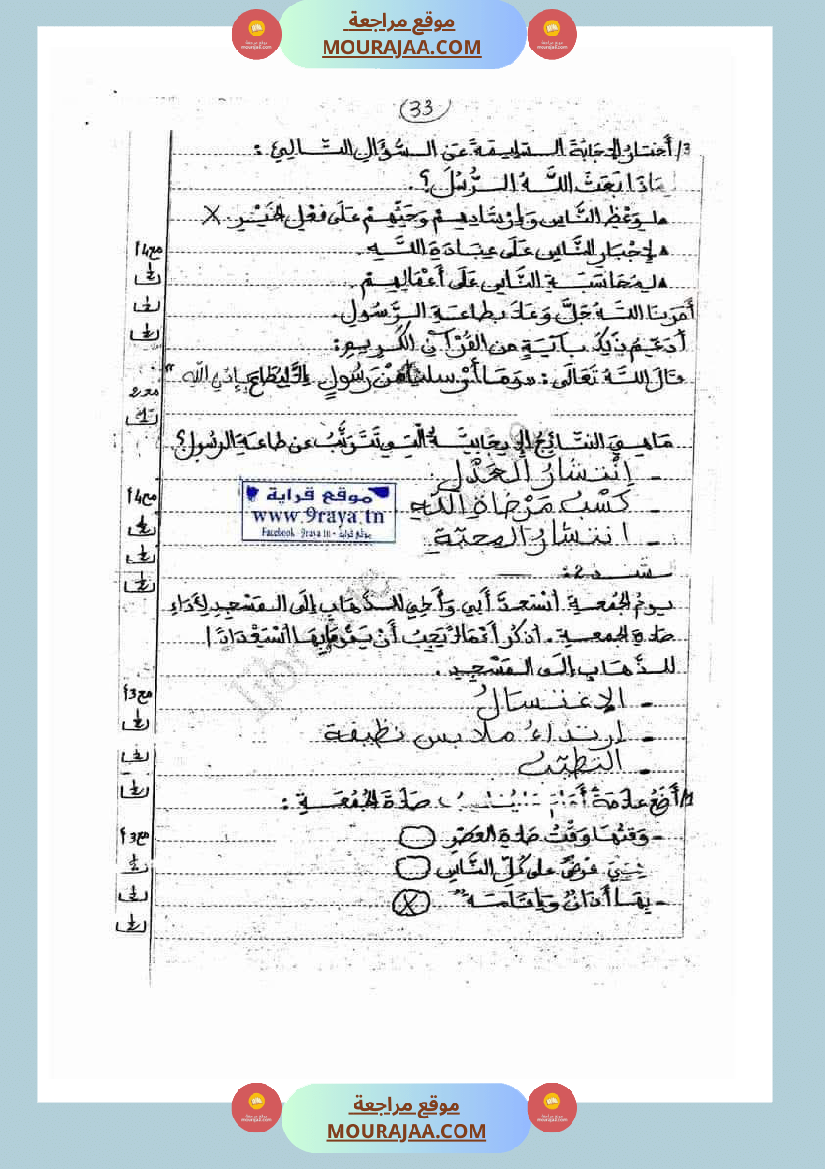 موقع مراجعة
MOURAJAA.COM
33
3/ أَخْتَارُ الإِجَابَةَ السَّلِيمَةَ عَنِ السُّؤَالِ التَّالِي :
لِمَاذَا بَعَثَ اللَّهُ الرُّسُلَ ؟.
لِوَعْظِ النَّاسِ وَإِرْشَادِهِمْ وَحَثِّهِمْ عَلَى فِعْلِ الخَيْرِ. X
لِإِجْبَارِ النَّاسِ عَلَى عِبَادَةِ اللَّهِ.
لِمُحَاسَبَةِ النَّاسِ عَلَى أَعْمَالِهِمْ.
أَمَرَنَا اللَّهُ جَلَّ وَعَلَا بِطَاعَةِ الرَّسُولِ.
أُدَعِّمُ ذَلِكَ بِآيَةٍ مِنَ القُرْآنِ الكَرِيمِ:
قَالَ اللَّهُ تَعَالَى : «وَمَا أَرْسَلْنَا مِنْ رَسُولٍ إِلَّا لِيُطَاعَ بِإِذْنِ اللهِ "
مَا هِيَ النَّتَائِجُ الإِيجَابِيَّةُ الَّتِي تَتَرَتَّبُ عَنْ طَاعَةِ الرَّسُولِ؟
- إِنْتِشَارُ العَدْلِ
- كَسْبُ مَرْضَاةِ اللَّهِ
- انتشارُ المحبّةِ
موقع قراية
www.9raya.tn
Facebook 9raya.tn - موقع قراية
سند 2:
يَوْمُ الجُمُعَةِ اسْتَعَدَّ أَبِي وَأَخِي لِلذَّهَابِ إِلَى المَسْجِدِ لِأَدَاءِ
صَلَاةِ الجُمُعَةِ. أَذْكُرُ أَعْمَالًا يَجِبُ أَنْ يَقُومَا بِهَا اسْتِعْدَادًا
لِلذَّهَابِ إِلَى المَسْجِدِ.
- الإغتسالُ
- ارتداءُ ملابس نظيفة
- التطيّبُ
1/ أَضَعُ عَلَامَةً أَمَامَ مَا يُنَاسِبُ صَلَاةَ الجُمُعَةِ :
- وَقْتُهَا وَقْتُ صَلَاةِ العَصْرِ
هِيَ فَرْضٌ عَلَى كُلِّ النَّاسِ
- بِهَا أَذَانٌ وَإِقَامَةٌ X
مع4أ
مع2
مع4أ
مع3أ
مع3أ
موقع مراجعة
MOURAJAA.COM